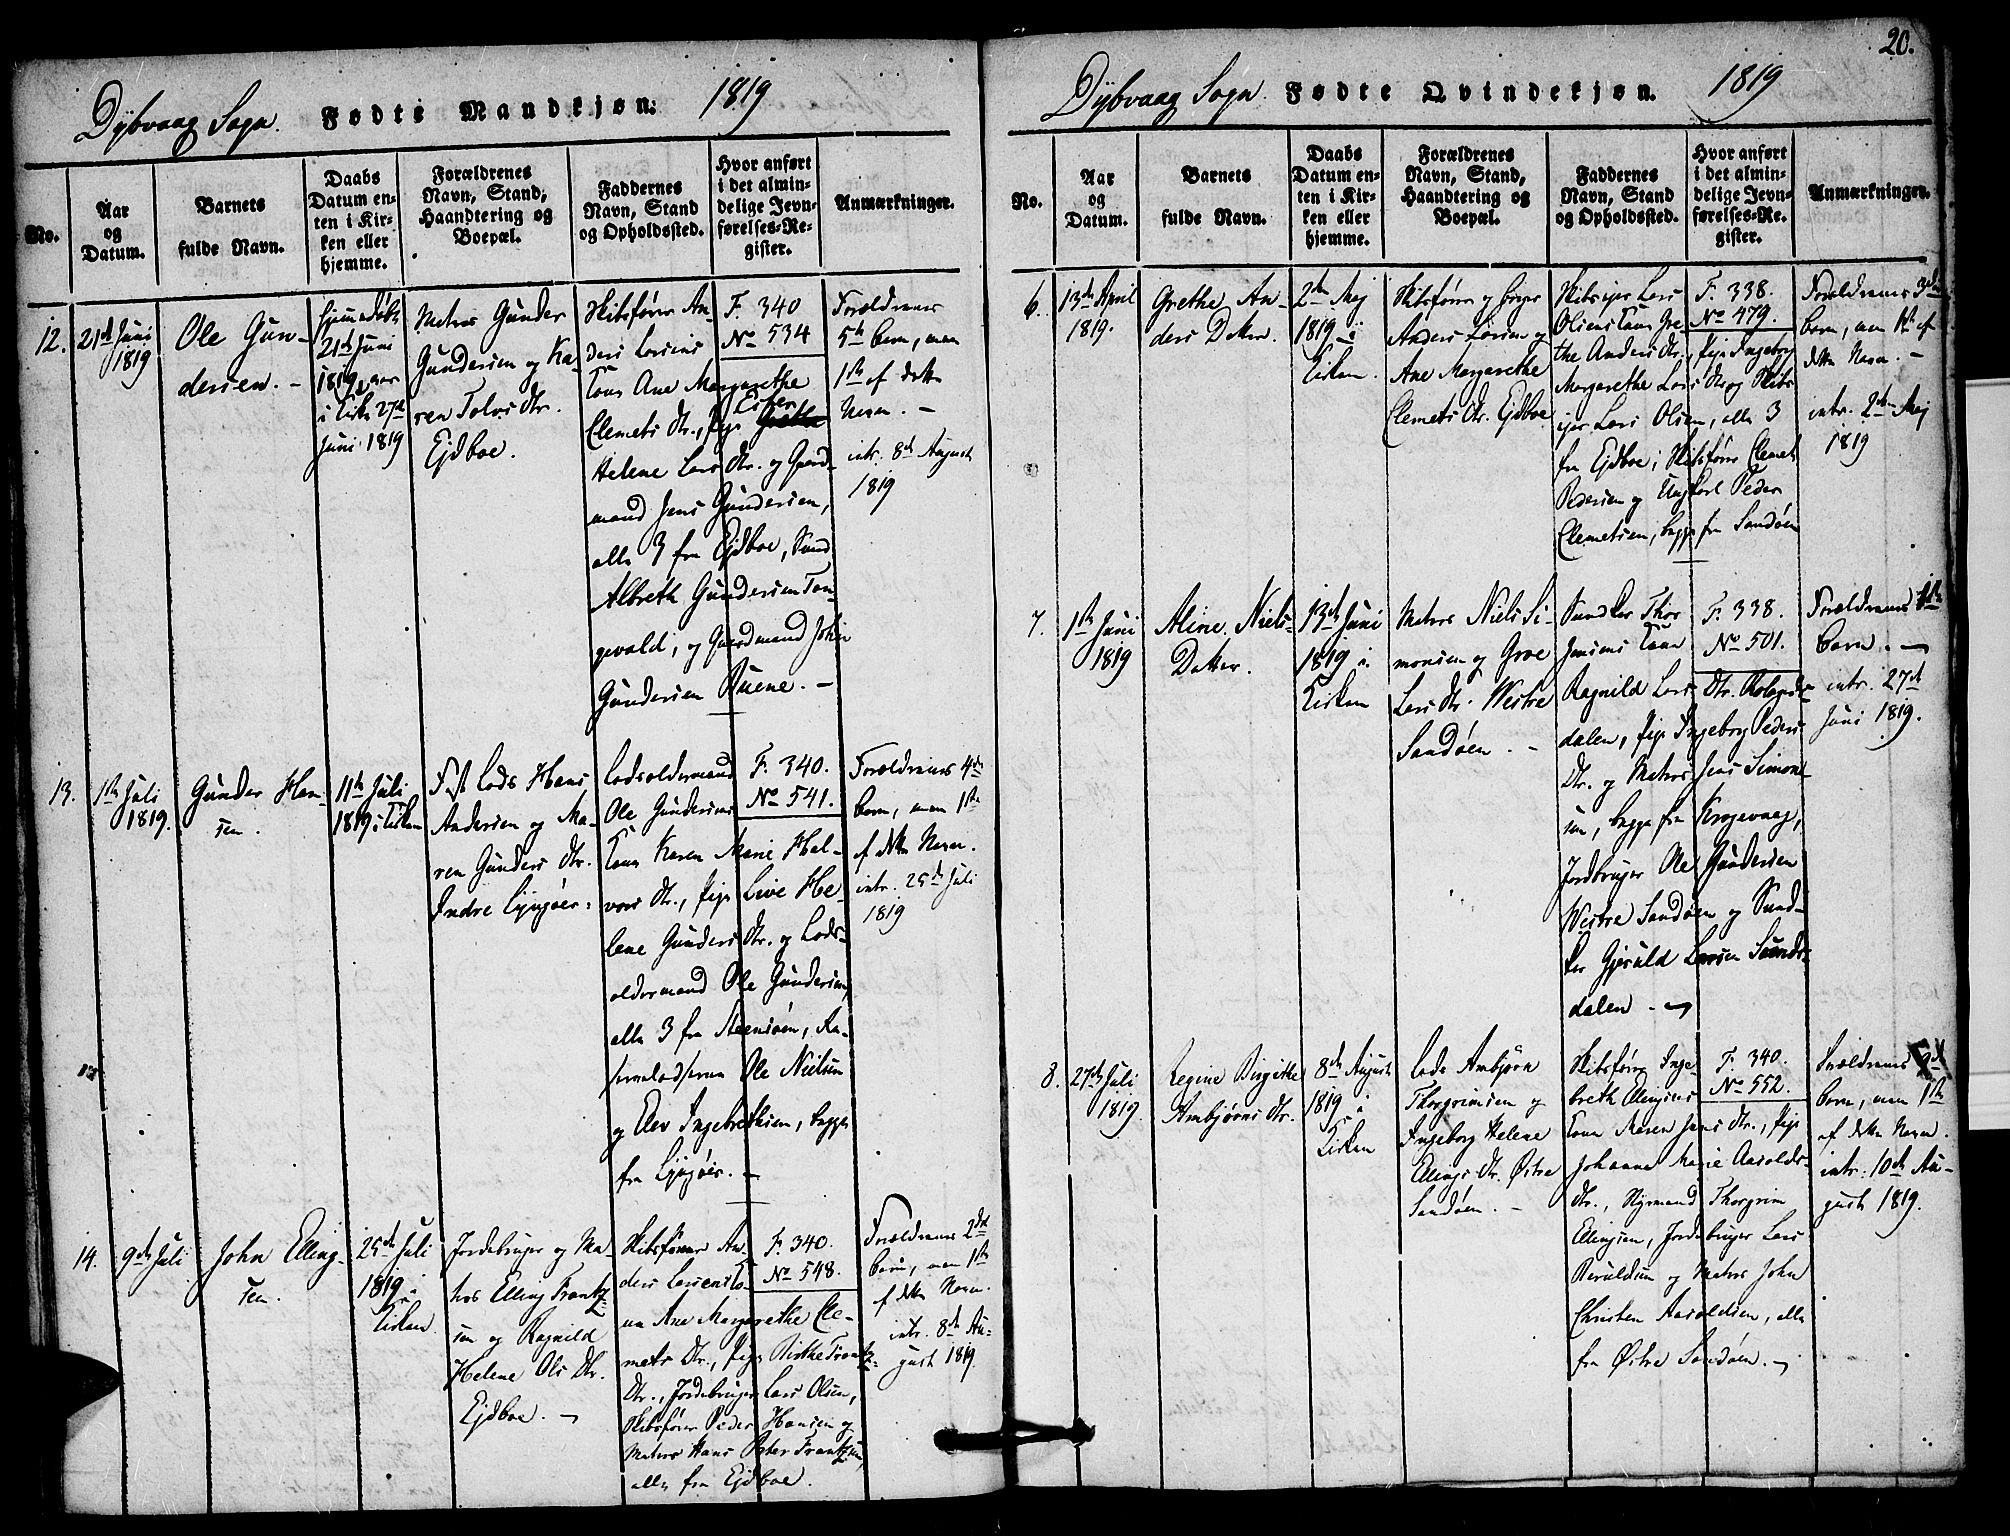 Dybvaag Sogn. Fødte Mandkjøn: 1819
No.
Aar
og
Datum.
Barnets
fulde Navn.
Daabs
Datum en-
ten i Kir-
ken eller
hjemme.
Forældrenes
Navn, Stand,
Haandtering og
Boepæl.
Faddernes
Navn, Stand
og Opholdssted.
Hvor anført
i det almin-
delige Jevn-
førelses-Re-
gister.
Anmærkninger.
12.
21de Juni
1819
Ole Gun-
dersen. -
hjemmedøbt
21de Juni
1819,
i Kirke 27de
Juni 1819
Matros Gunder
Gundersen og Ka-
ren Tolvs Dtr.
Ejdboe.
Skibsfører An-
ders Lorsens
Kone Ane Margarethe
Clemets Dtr., Pige Ester
Helene Lars Dtr. og Gaard-
mand Jens Gundersen,
alle 3 fra Ejdboe,
Albreth Gundersen Tan-
gevald, og Gaardmand John
Gundersen Ruene. -
F. 340
No 534
Forældrenes
5te barn, men
1ste af dette
Navn. -
intr. 8de August
1819
13.
1ste Juli
1819.
Gunder Han-
sen.
11te Juli
1819 i Kirken
Fast Lods Hans
Andersen og Ma-
ren Gunders Dtr.
Indre Lyngöer.
Lodsoldermand
Ole Gundersens
Kone Karen Marie Hal-
vors Dtr., Pige Live He-
lene Gunders Dtr. og Lods-
oldermand Ole Gundersen,
alle 3 fra Steensöen,
Ole Nielsen
og Elev Ingebrethsen, begge
fra Lyngöer. -
F. 340.
No 541.
Forældrenes 4de
barn, men 1ste
af dette Navn.
intr. 25de Juli
1819
14.
9de Juli
John Elling-
sen.
25de Juli
1819 i
Kirken
Jordebruger og Ma-
tros Elling Frantz-
sen og Ragnild
Helene Ols Dtr.
Ejdboe. -
Skibsfører An-
ders Larsens Ko-
ne Ane Margarethe Cle-
mets Dtr., Pige Birthe Frantz-
Dtr., Jordebruger Lars Olsen,
Skibsfører Peder Hansen og
Matros Hans Peter Frantzsen,
alle fra Ejdboe.
F. 340.
No 548.
Forældrenes 2det
barn, men 1ste
af dette Navn.
intr. 8de Au-
gust 1819.
20.
Dybvaag Sogn. Fødte Qvindekjøn. 1819
No.
Aar
og
Datum.
Barnets
fulde Navn.
Daabs
Datum en-
ten i Kir-
ken eller
hjemme.
Forældrenes
Navn, Stand,
Haandtering og
Boepæl.
Faddernes
Navn, Stand
og Opholdssted.
Hvor anført
i det almin-
delige Jevn-
førelses-Re-
gister.
Anmærkninger.
6.
13de April
1819.
Grethe An-
ders Datter.
2den Maj
1819 i
Kirken.
Skibsfører og Borger
Anders Lorsen og
Ane Margarethe
Clemets Dtr. Ejdboe
Skibsejer Lars
Olsens Kone Gre-
the Anders Dtr., Pige Ingeborg
Margarethe Lars Dtr. og Skibs-
ejer Lars Olsen, alle 3
fra Ejdboe; Skibsfører Clemet
Pedersen og Ungkarl Peder
Clemetsen, begge fra Sandøen
F. 338.
No 479.
Forældrenes 3die
barn, men 1ste af
dette Navn. -
intr. 2den Maj
1819
7.
1ste Juni
1819
Aline Niels-
Datter.
13de Juni
1819 i
Kirken
Matros Niels Si-
monsen og Groe
Lars Dtr. Westre
Sandøen. -
Thor
Jensens Kone
Ragnild Lars Dtr.
dalen, Pige Ingeborg Peders
Dtr. og Matros Jens Simon-
sen, begge fra Krogevaag,
Jordbruger Ole Gundersen
Westre Sandøen og
Gjeruld Larsen Sands-
dalen. -
F. 338.
No 501.
Forældrenes 1ste
barn. -
intr. 27de
Juni 1819.
8.
27de Juli
1819.
Regine Birgithe
Ambjørns Dtr.
8de August
1819 i
Kirken
Lods Ambjørn
Thorgrimsen og
Ingeborg Helene
Ellings Dtr. Østre
Sandøen. -
Skibsfører Inge-
breth Ellingsens
Kone Maren Jens Dtr., Pige
Johanne Marie Aarolds-
Dtr., Styrmand Thorgrim
Ellingsen, Jordebruger Lars
Beruldsen og Matros John
Christen Aaroldsen, alle
fra Østre Sandøen. -
F. 340.
No 552.
Forældrenes
barn, men 1ste
af dette Navn.
intr. 10de Au-
gust 1819.